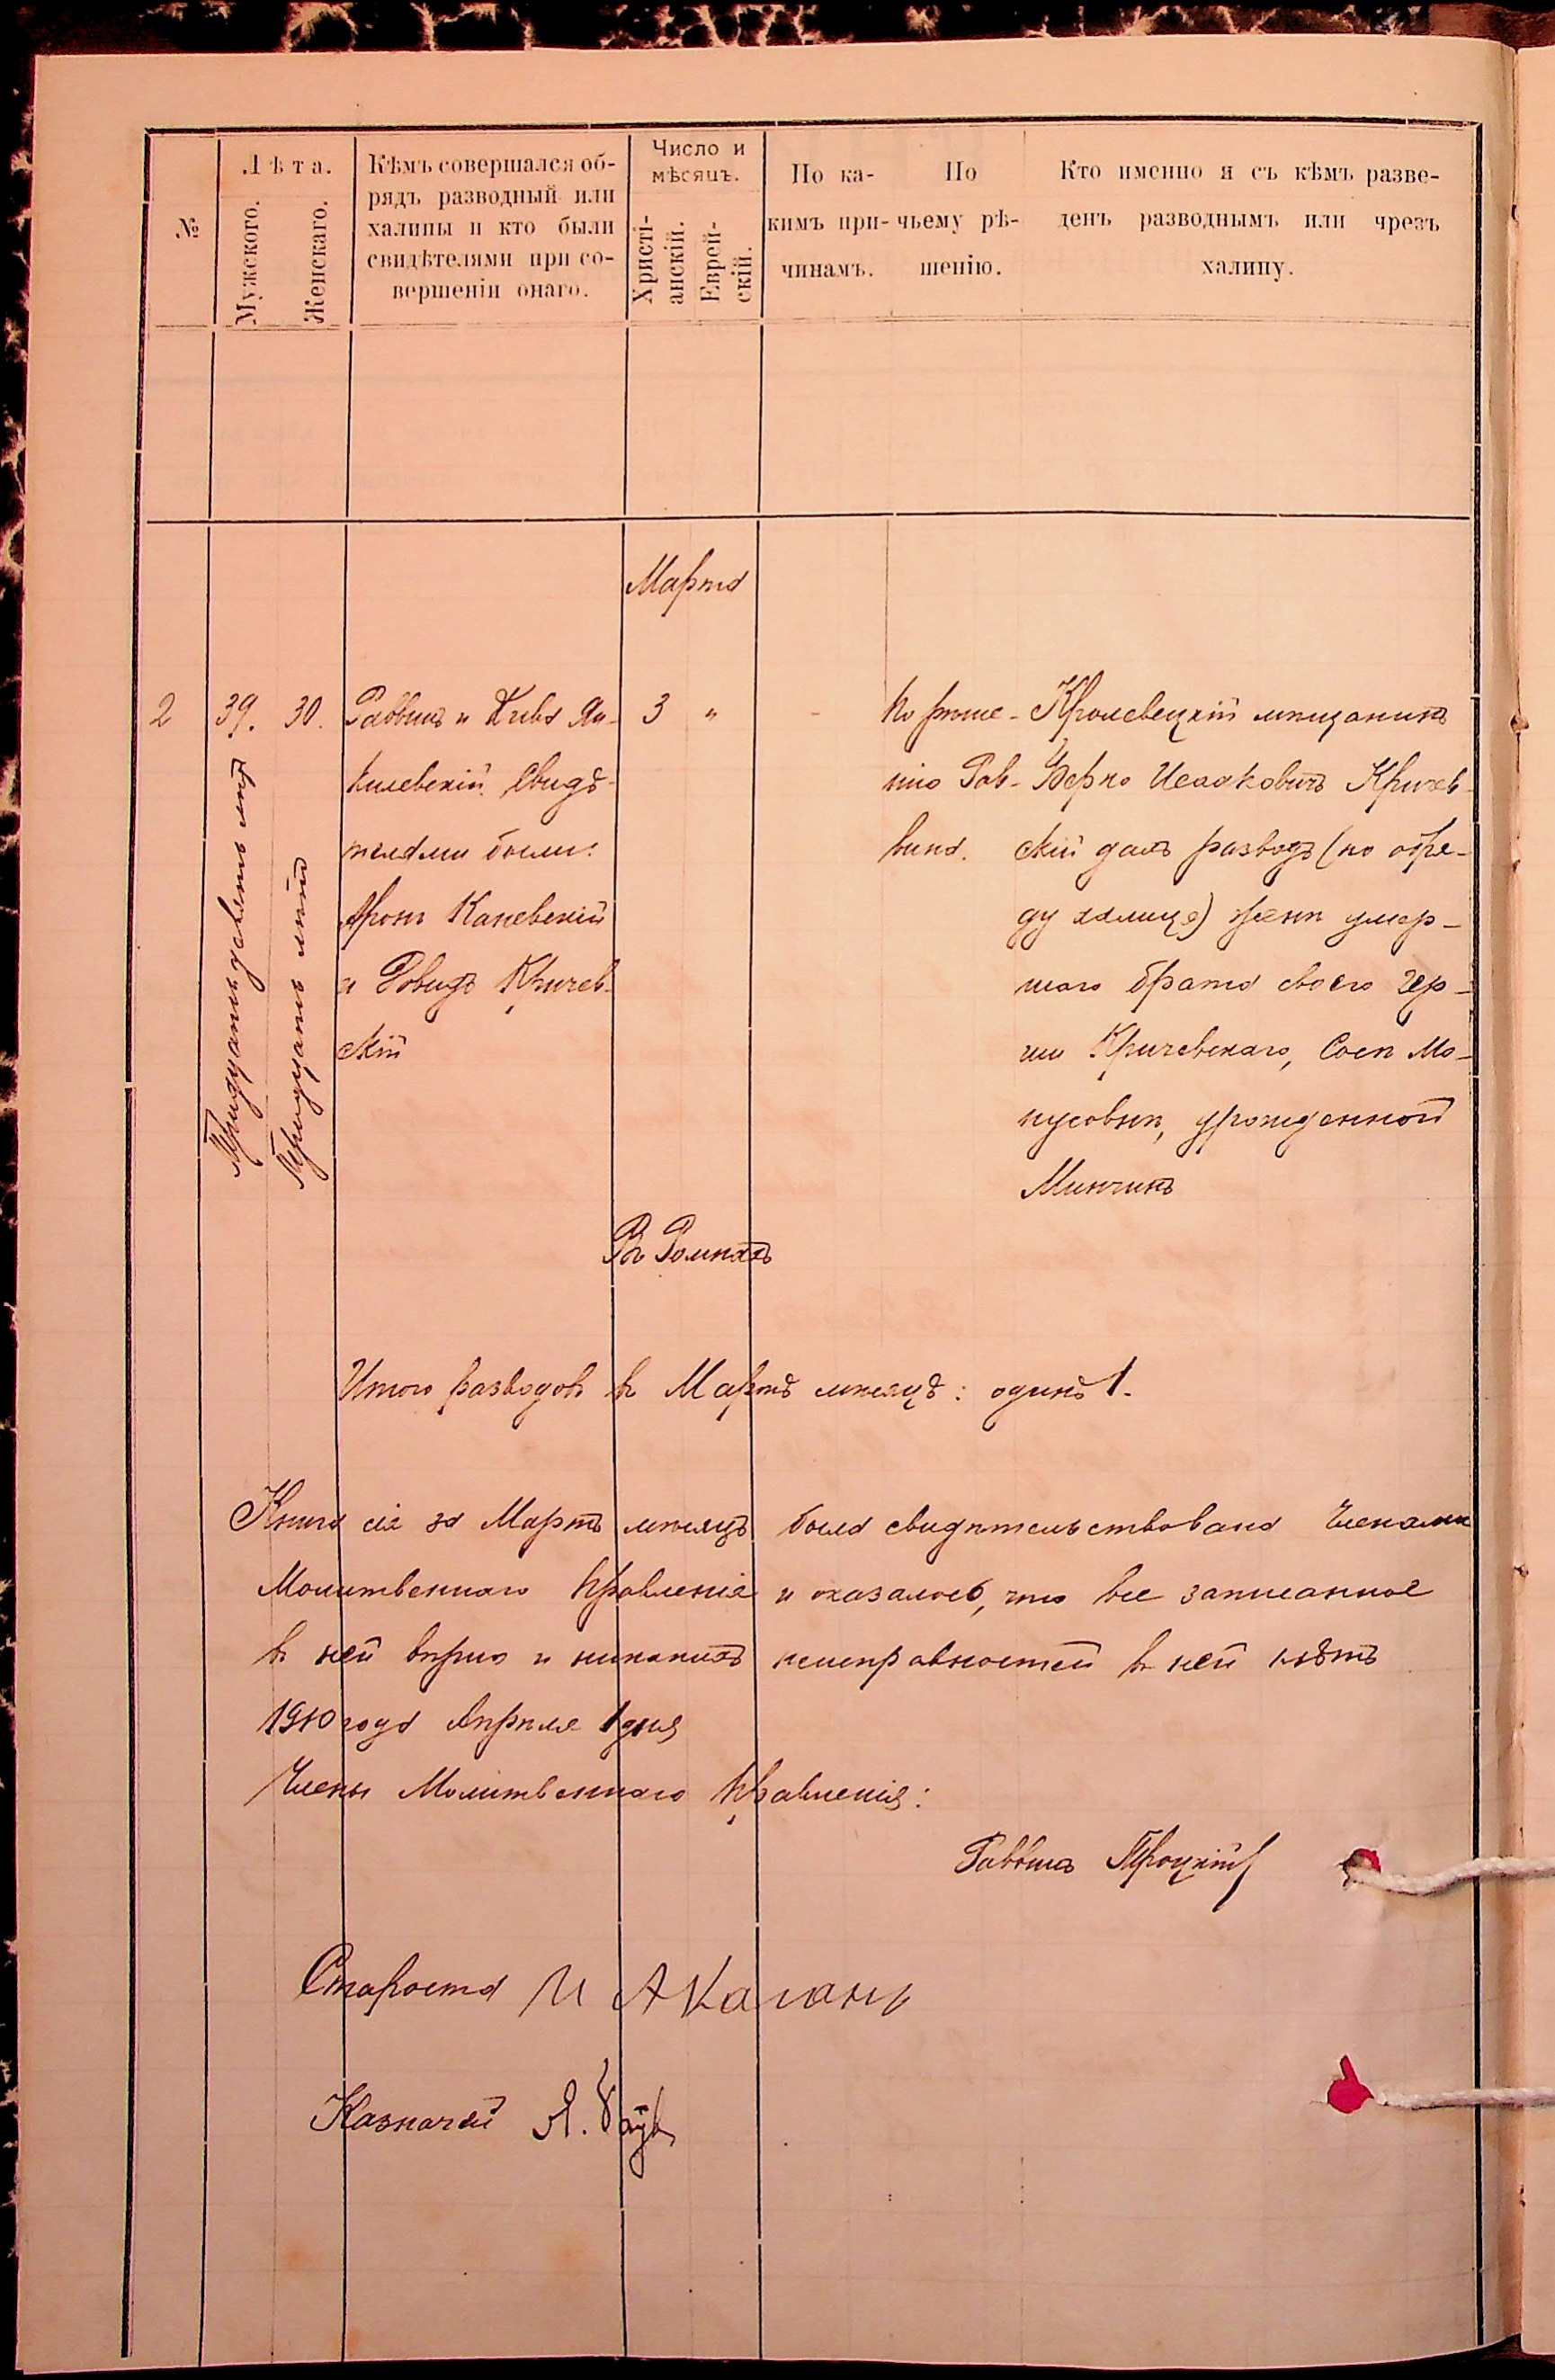 №
Лѣта.
Мужского.
Женскаго.
Кѣмъ совершался об-
рядъ разводный или
халицы и кто были
свидѣтелями при со-
вершеніи онаго.
Число и
мѣсяцъ.
Христі-
анскій.
Еврей-
скій.
По ка-
кимъ при-
чинамъ.
По
чьему рѣ-
шенію.
Кто именно и съ кѣмъ разве-
денъ разводнымъ или чрезъ
халицу.
Марта
2
39.
Тридцать девять лѣтъ
30.
Тридцать лѣтъ
Раввинъ и
килевскій. Свидѣ-
телями были:
Аронъ Каневскій
и Довидъ Кричев-
скій
3 "
По рѣше-
нію Рав-
вина.
Кролевецкій мѣщанинъ
Берко Исааковичъ Кричев-
скій далъ разводъ (по обря-
ду халице) женѣ умер-
шаго брата своего Гер-
ша Кричевскаго, Сосѣ Мо-
нусовнѣ, урожденной
Минчинъ
Въ Ромнахъ
Итого разводовъ въ Мартѣ мѣсяцѣ: одинъ 1.
Книга сія за Мартъ мѣсяцъ была свидѣтельствована Членами
Молитвеннаго Правленія и оказалось, что все записанное
въ ней вѣрно и никакихъ неисправностей въ ней нѣтъ
1910 года Апрѣля 1 дня
Члены Молитвеннаго Правленія:
Раввинъ Троцкій
Староста И А Каганъ
Казначей Я.